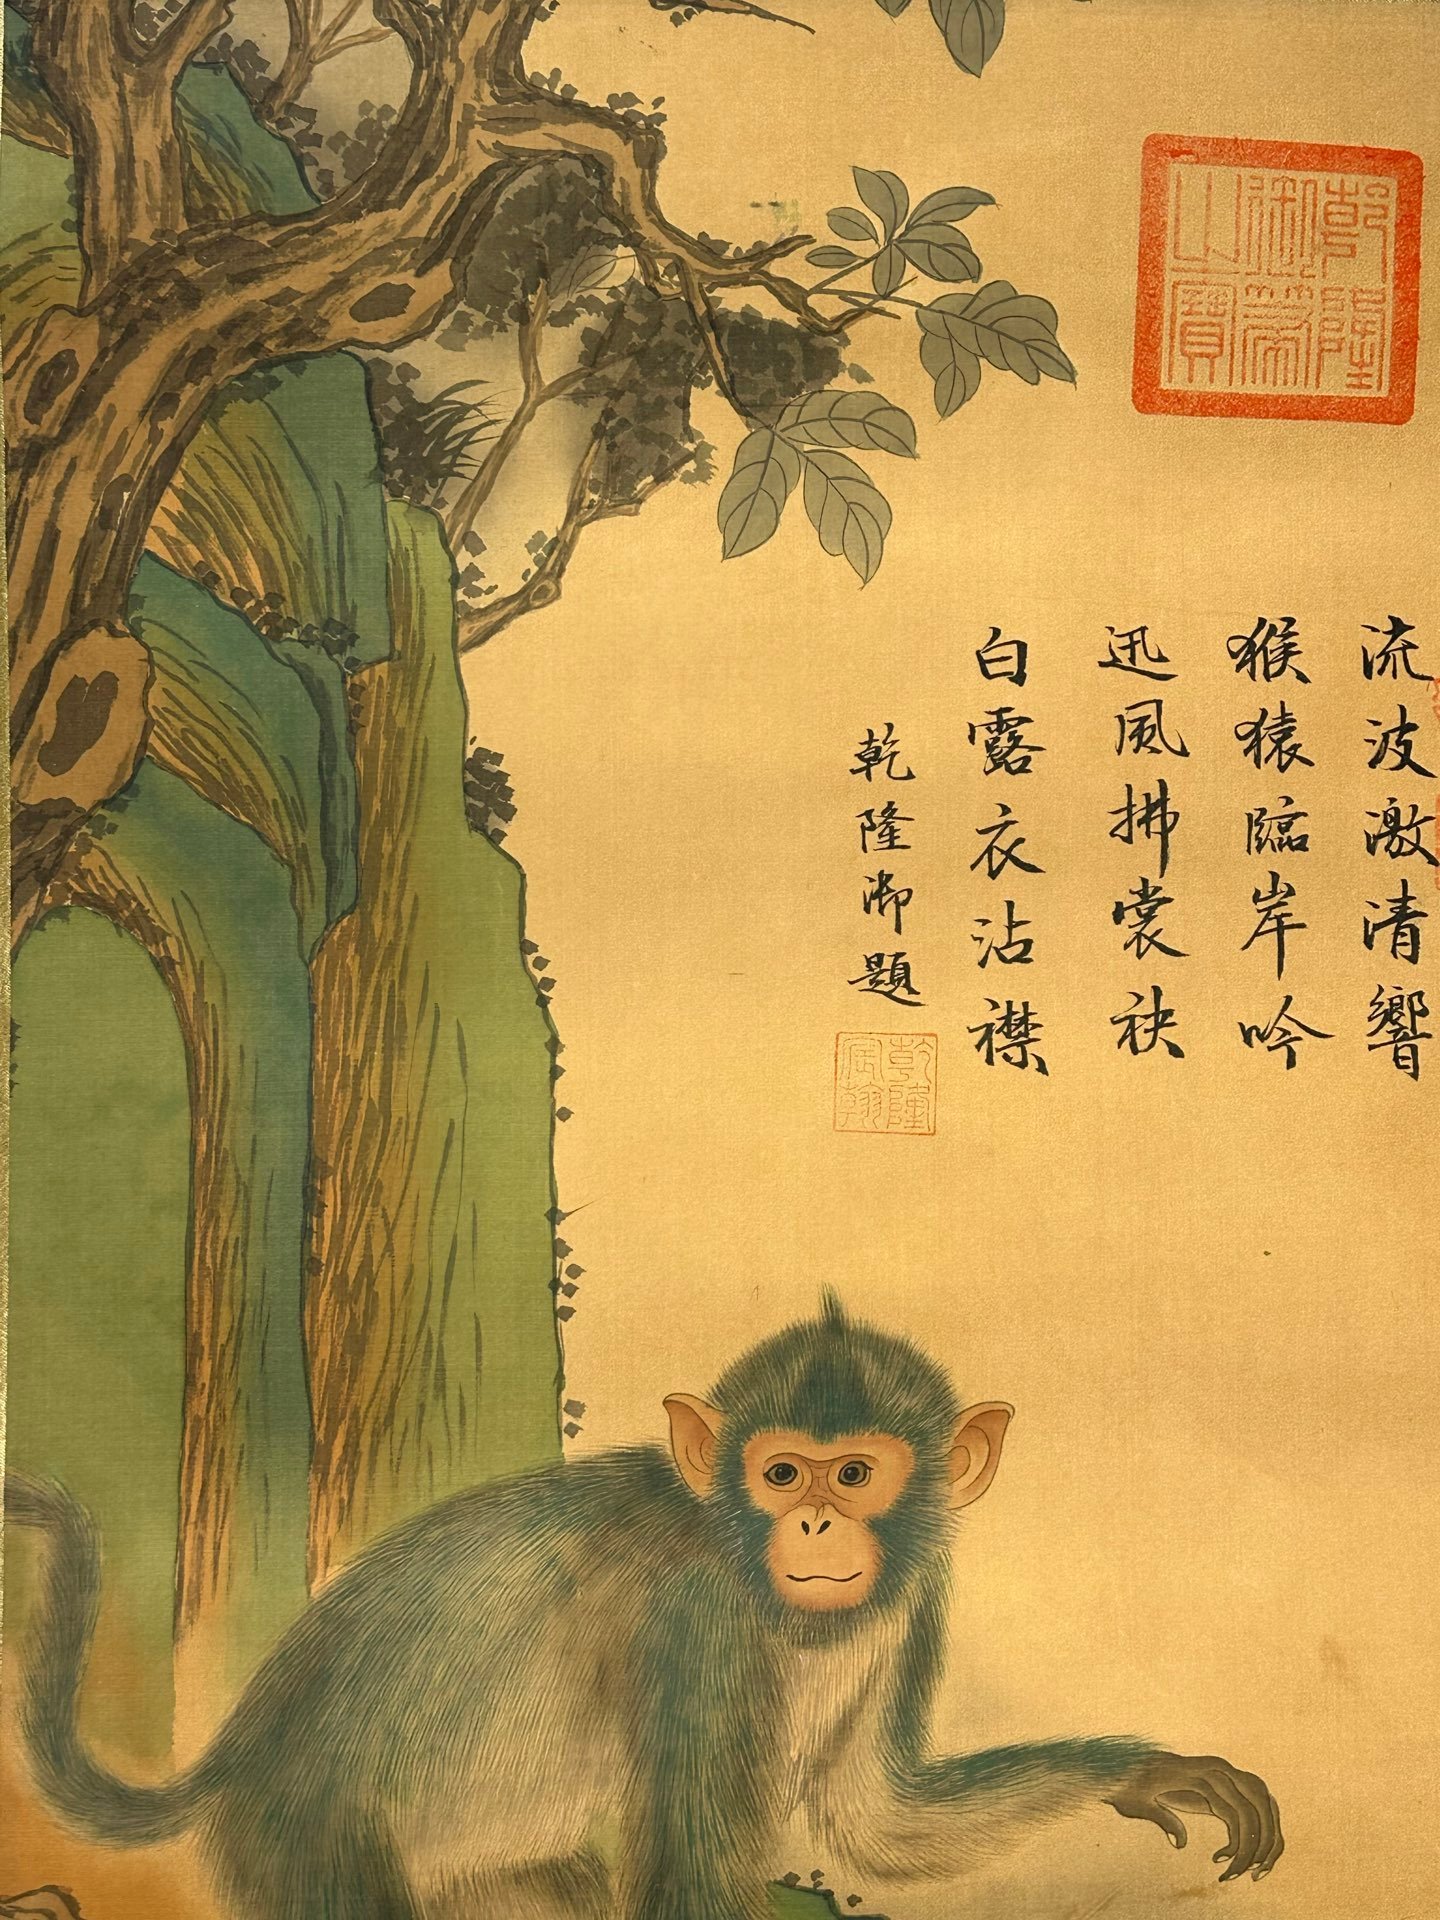 乾隆御筆之寶
流波激清響
猴猿臨岸吟
迅風拂裳袂
白露衣沾襟
乾隆御題
乾隆宸翰